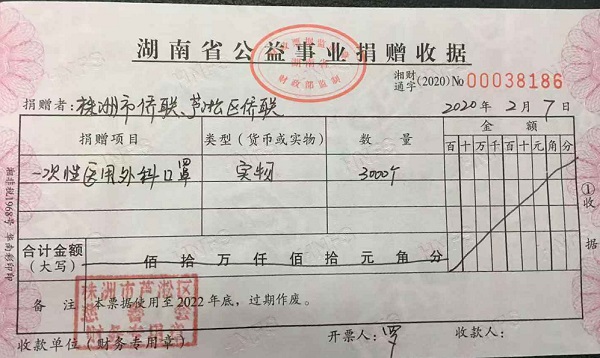 湖南省公益事业捐赠收据
湘财通字(2020) No 00038186
捐赠者:株洲市侨联、芦淞区侨联 2020年2月7日
捐赠项目 类型(货币或实物) 数量 金额
百十万千百十元角分
一次性医用外科口罩 实物 3000个
合计金额(大写) 佰拾万仟佰拾元角分
备注 本票据使用至2022年底,过期作废。
收款单位(财务专用章) 开票人:罗 收款人:
①收据
湘非税1968号
财政部监制
株洲市芦淞区
慈善会